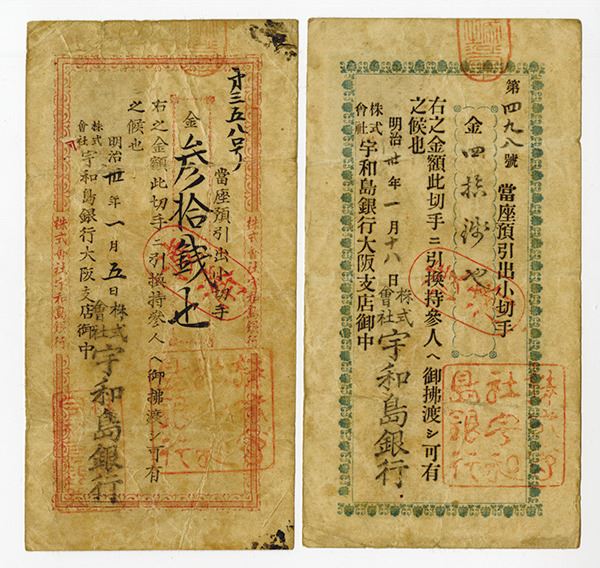 第四九八號
當座預引出小切手
金四拾錢也
右之金額此切手ニ引換持參人ヘ御拂渡シ可有
之候也
明治卅年一月十八日
株式會社宇和島銀行
株式會社宇和島銀行大阪支店御中
才三五八号
當座預引出小切手
金参拾銭也
右之金額此切手ニ引換持參人ヘ御拂渡シ可有
之候也
明治卅年一月五日
株式會社宇和島銀行
株式會社宇和島銀行大阪支店御中
株式會社宇和島銀行